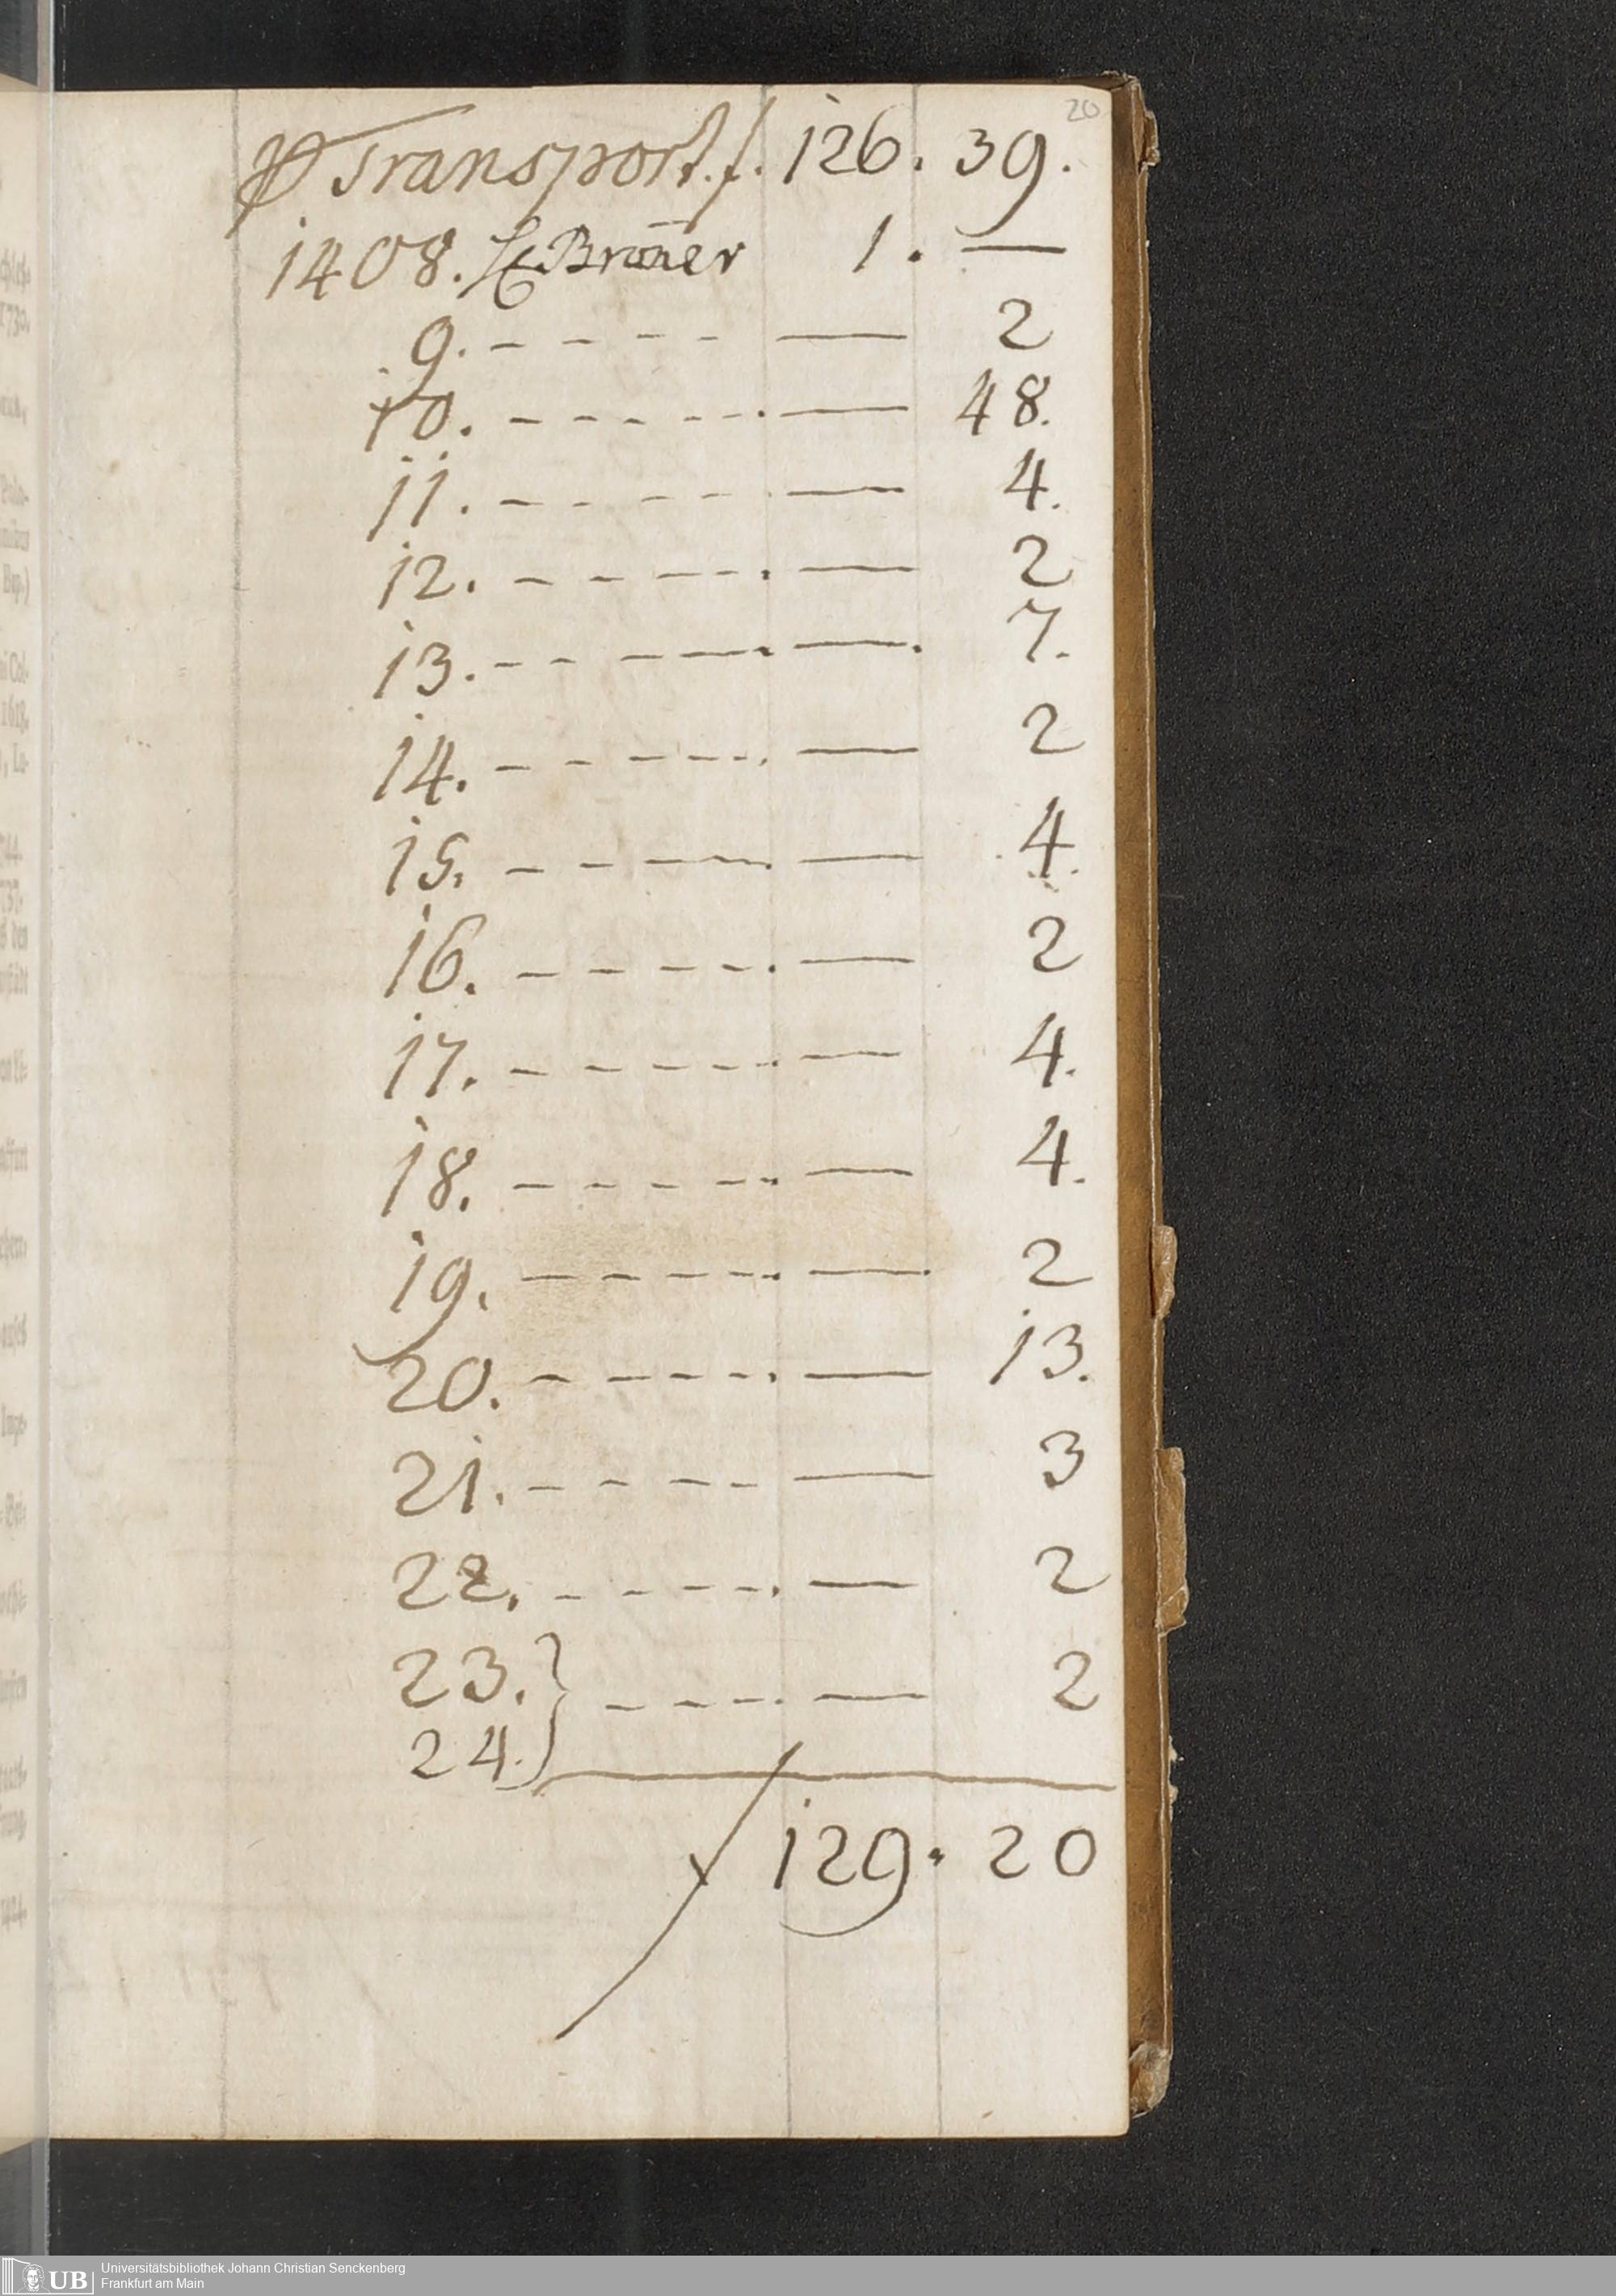 20
Transport. f. 126. 39.
1408. H. Bröner 1. —
9. - - - - — 2
10. - - - - - — 48.
11. - - - - — 4.
12. - - - - — 2
13. - - - - — 7.
14. - - - - - — 2
15. - - - - — 4.
16. - - - - - — 2
17. - - - - - — 4.
18. - - - - - — 4.
19. - - - - - — 2
20. - - - - - — 13.
21. - - - - — 3
22. - - - - — 2
23. } - - - - — 2
24. }
f 129. 20
UB Universitätsbibliothek Johann Christian Senckenberg
Frankfurt am Main